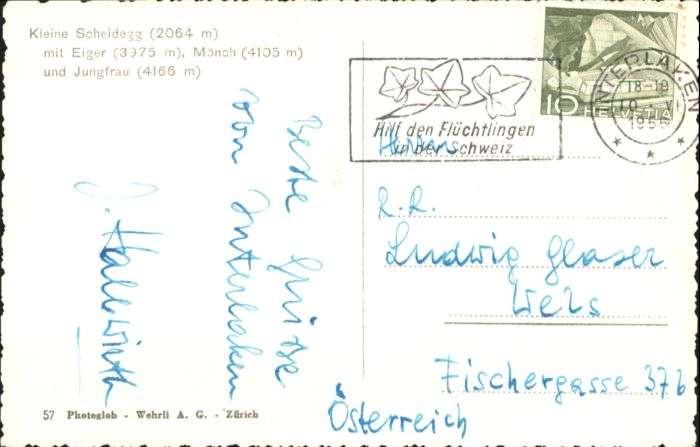 Kleine Scheidegg (2064 m)
mit Eiger (3975 m), Mönch (4105 m)
und Jungfrau (4166 m)
Beste Grüsse
von Interlaken
57 Photoglob - Wehrli A. G. - Zürich
Hilf den Flüchtlingen
in der Schweiz
10
HELVETIA
INTERLAKEN
18-19
10. V.
Herrn
R. R.
Ludwig Glaser
Wels
Fischergasse 37b
Österreich